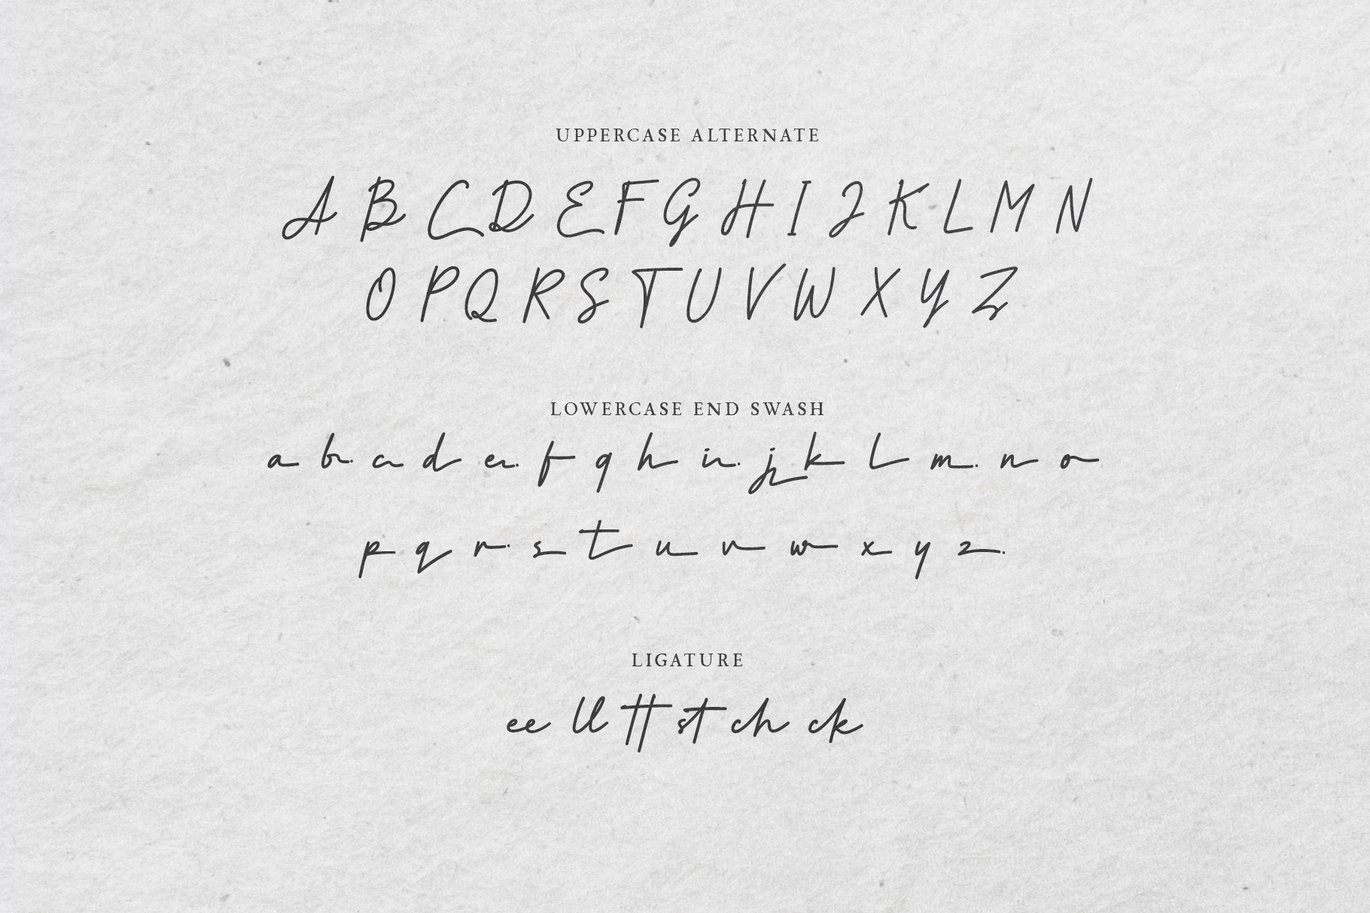 UPPERCASE ALTERNATE
A B C D E F G H I J K L M N
O P Q R S T U V W X Y Z
LOWERCASE END SWASH
a b c d e f g h i j k l m n o
p q r s t u v w x y z
LIGATURE
ee ll tt st ch ck